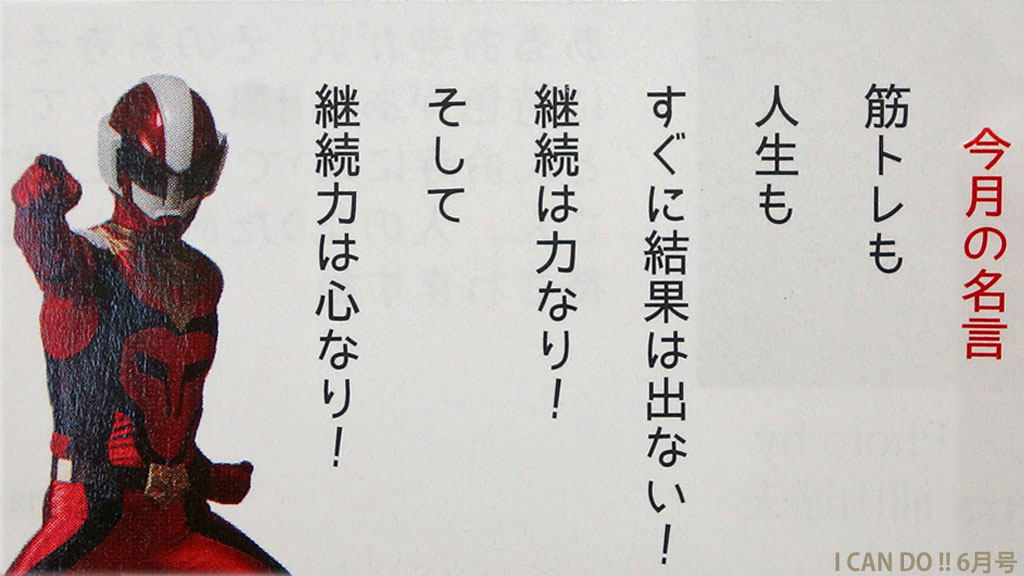 今月の名言
筋トレも
人生も
すぐに結果は出ない！
継続は力なり！
そして
継続力は心なり！
I CAN DO !! 6月号